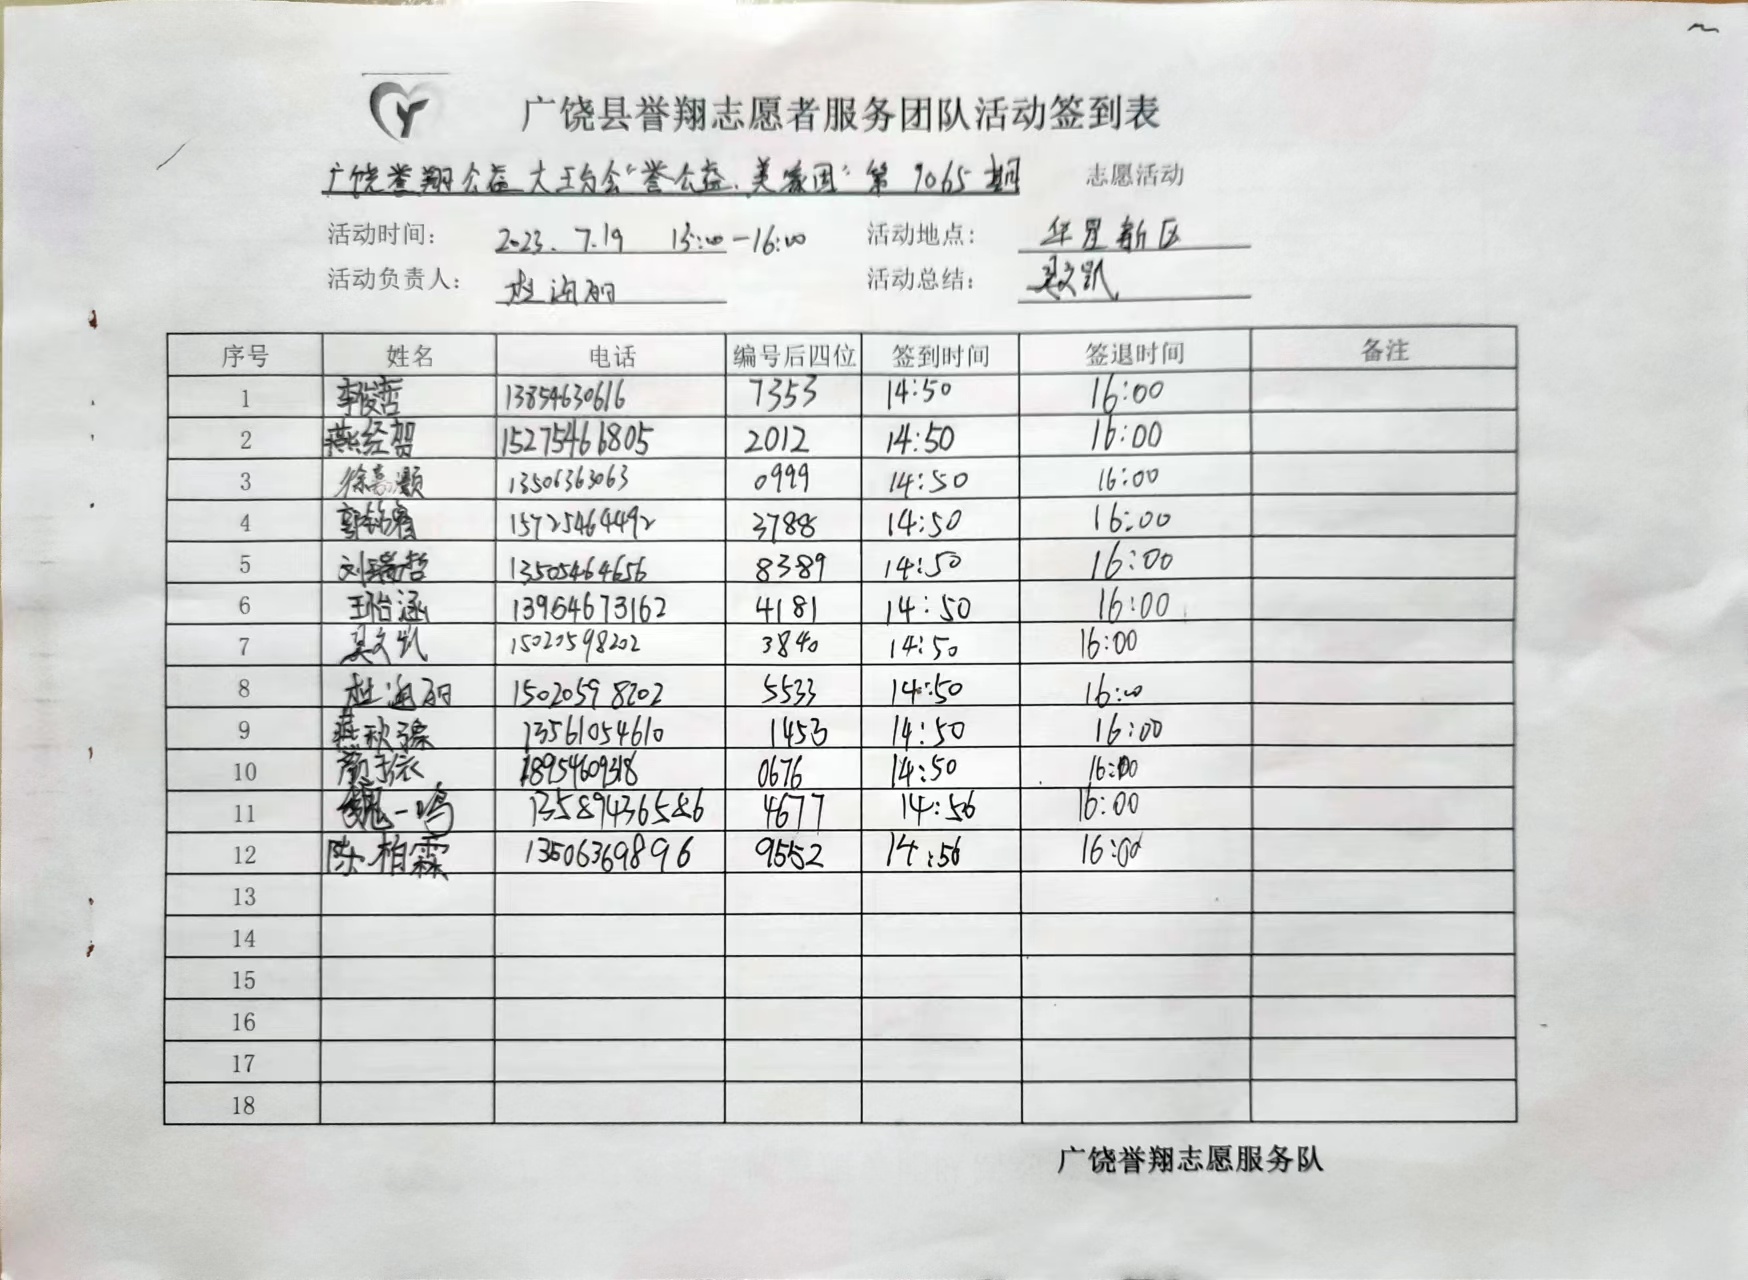 广饶县誉翔志愿者服务团队活动签到表
广饶誉翔公益大王分会"誉公益、美家园"第9065期 志愿活动
活动时间: 2023.7.19 15:00-16:00 活动地点: 华星新区
活动负责人: 杜海丽 活动总结: 吴文凯
序号 姓名 电话 编号后四位 签到时间 签退时间 备注
1 李俊哲 13854630616 7353 14:50 16:00
2 燕经贺 15275466805 2012 14:50 16:00
3 徐嘉灏 13506363063 0999 14:50 16:00
4 郭铭睿 15725464492 3788 14:50 16:00
5 刘瑞哲 13505464656 8389 14:50 16:00
6 王怡涵 13964673162 4181 14:50 16:00
7 吴文凯 15020598202 3840 14:50 16:00
8 杜海丽 15020598202 5533 14:50 16:00
9 燕秋 13561054610 1453 14:50 16:00
10 依 18954609318 0676 14:50 16:00
11 魏一鸣 13589436586 4677 14:56 16:00
12 陈柏霖 13506369896 9552 14:56 16:00
13
14
15
16
17
18
广饶誉翔志愿服务队